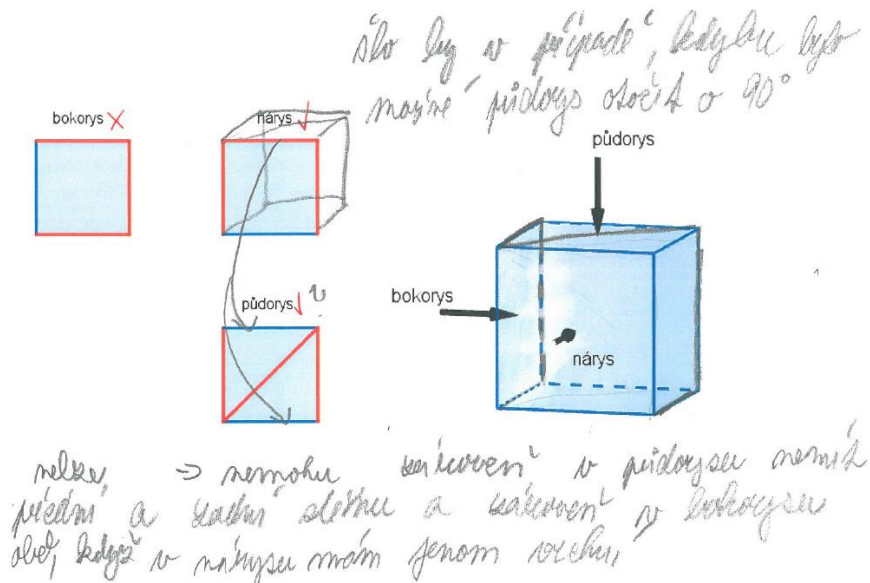 šlo by v případě, kdyby bylo
možné půdorys otočit o 90°
bokorys
nárys
půdorys
půdorys
bokorys
nárys
nelze, => nemohu zakreslení v půdorysu nemít
přední a zadní stěnu a v bokorysu
obě, když v nárysu mám jenom vrchu,